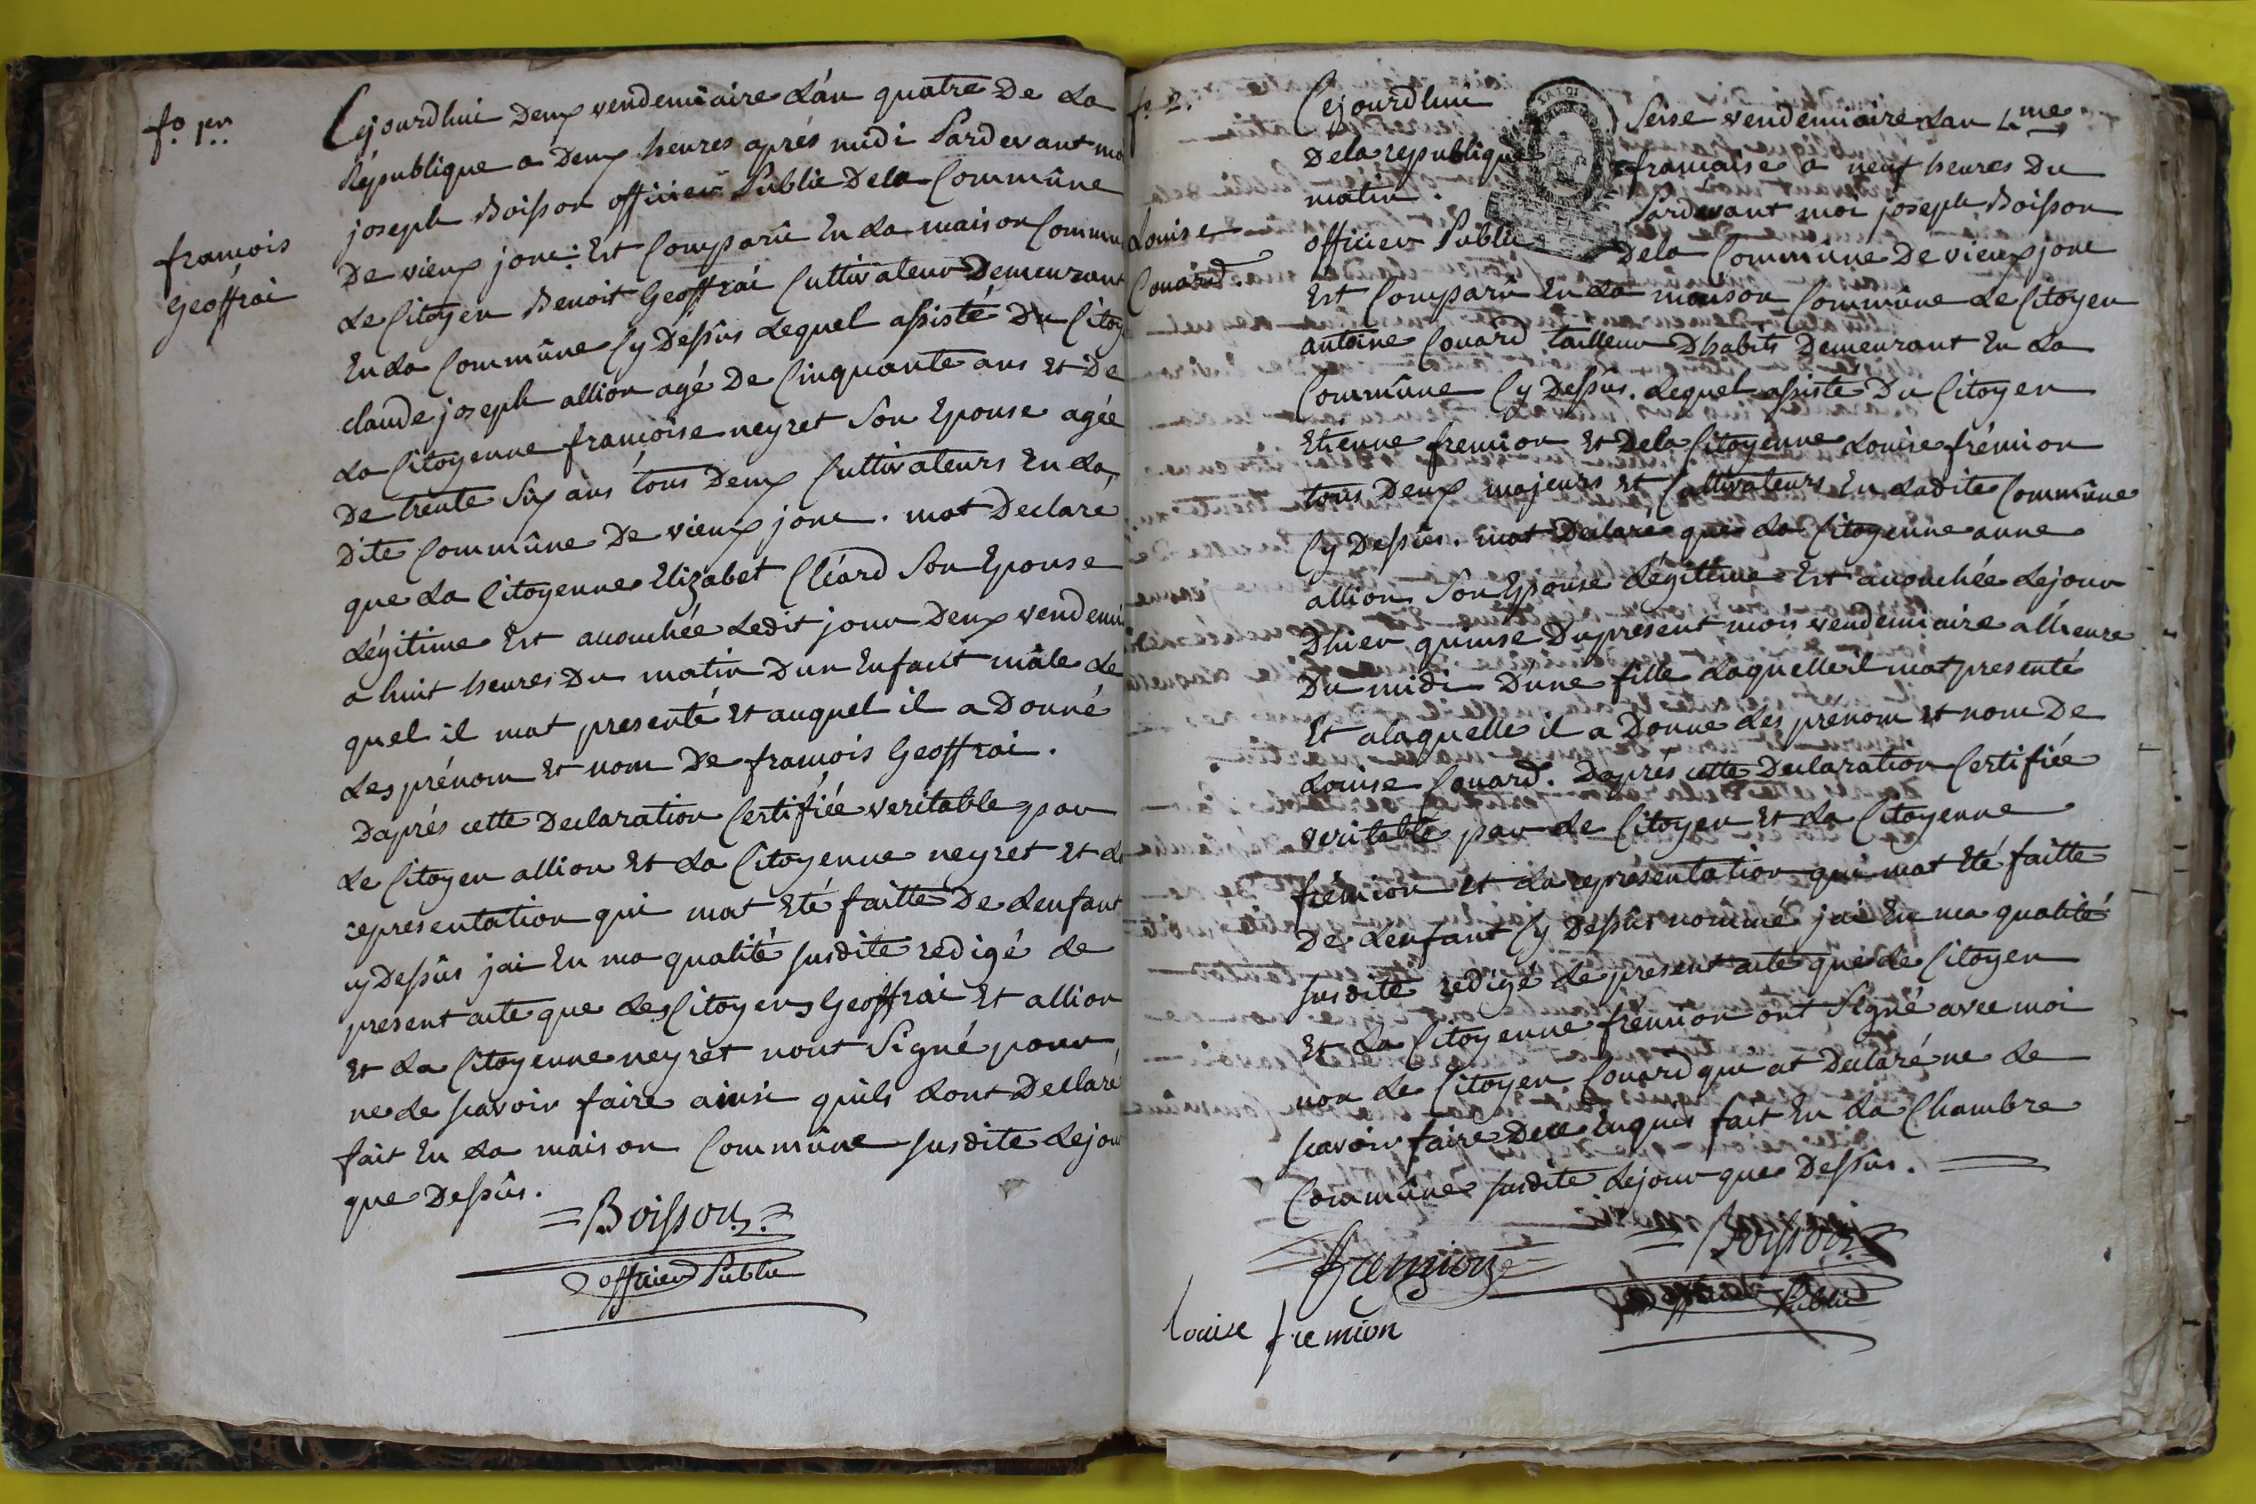 fo. 1er.
françois
Geoffrai
Cejourdhui Deux vendemiaire L'an quatre De La
République a Deux heures aprés midi Pardevant moi
joseph Boisson officier Public De la Commûne
De vieux jonc : Est Comparû En La maison Commu
Le Citoyen Benoit Geoffrai Cultivateur Demeurant
En La Commûne Cy Dessûs Lequel assisté Du Citoy
claude joseph allion agé De Cinquante ans Et De
La Citoyenne françoise neyret Son Epouse agée
De trente Six ans tous Deux Cultivateurs En La
Dite Commûne De vieux jonc . mat Declaré
que La Citoyenne Elizabet Cléard Son Epouse
Légitime Est acouchée Ledit jour Deux vendemi
a huit heures Du matin Dun Enfant mâle Le
quel il mat presenté Et auquel il a Donné
Les prénom Et nom De françois Geoffrai .
Daprés cette Declaration Certifiée veritable par
Le Citoyen allion Et La Citoyenne neyret Et La
representation qui mat Eté faitte De Lenfant
cy Dessûs jai En ma qualité susdite redigé Le
present acte que Les Citoyens Geoffrai Et allion
Et La Citoyenne neyret nont Signé pour
ne Le scavoir faire ainsi quils Lont Declaré
fait En La maison Commûne susdite Lejour
que Dessûs .
= Boisson =
officier Public
fo. 2.
Louise
Couard .
Cejourdhui Seise vendemiaire Lan 4me
De la republique francaise a neuf heures Du
matin . Pardevant moi joseph Boisson
officier Public De la Commûne De vieux jonc
Est Comparû En La maison Commûne Le Citoyen
antoine Couard tailleur Dhabits Demeurant En La
Commûne Cy Dessus . Lequel assisté Du Citoyen
Etienne fremion Et De la Citoyenne Louise frémion
tous Deux majeurs Et Cultivateurs En Ladite Commûne
Cy Dessûs . mat Declare que La Citoyenne anne
allion Son Epouse Légittime Est acouchée Lejour
Dhier quinse Du present mois vendemiaire a Lheure
Du midi D'une fille Laquelle il mat presenté
Et a laquelle il a Donne Les prenom Et nom De
Louise Couard . Daprés cette Declaration Certifiée
veritable par Le Citoyen Et La Citoyenne
frémion Et La représentation qui mat Eté faitte
De Lenfant Cy Dessûs nommé jai En ma qualité
susdite redigé Le present acte que Le Citoyen
Et La Citoyenne frémion ont Signé avec moi
non Le Citoyen Couard qui at Declaré ne Le
scavoir faire De ce Enquis fait En La Chambre
Commûne susdite Lejour que Dessûs .
fremion
= Boisson
officier Public
louise fremion